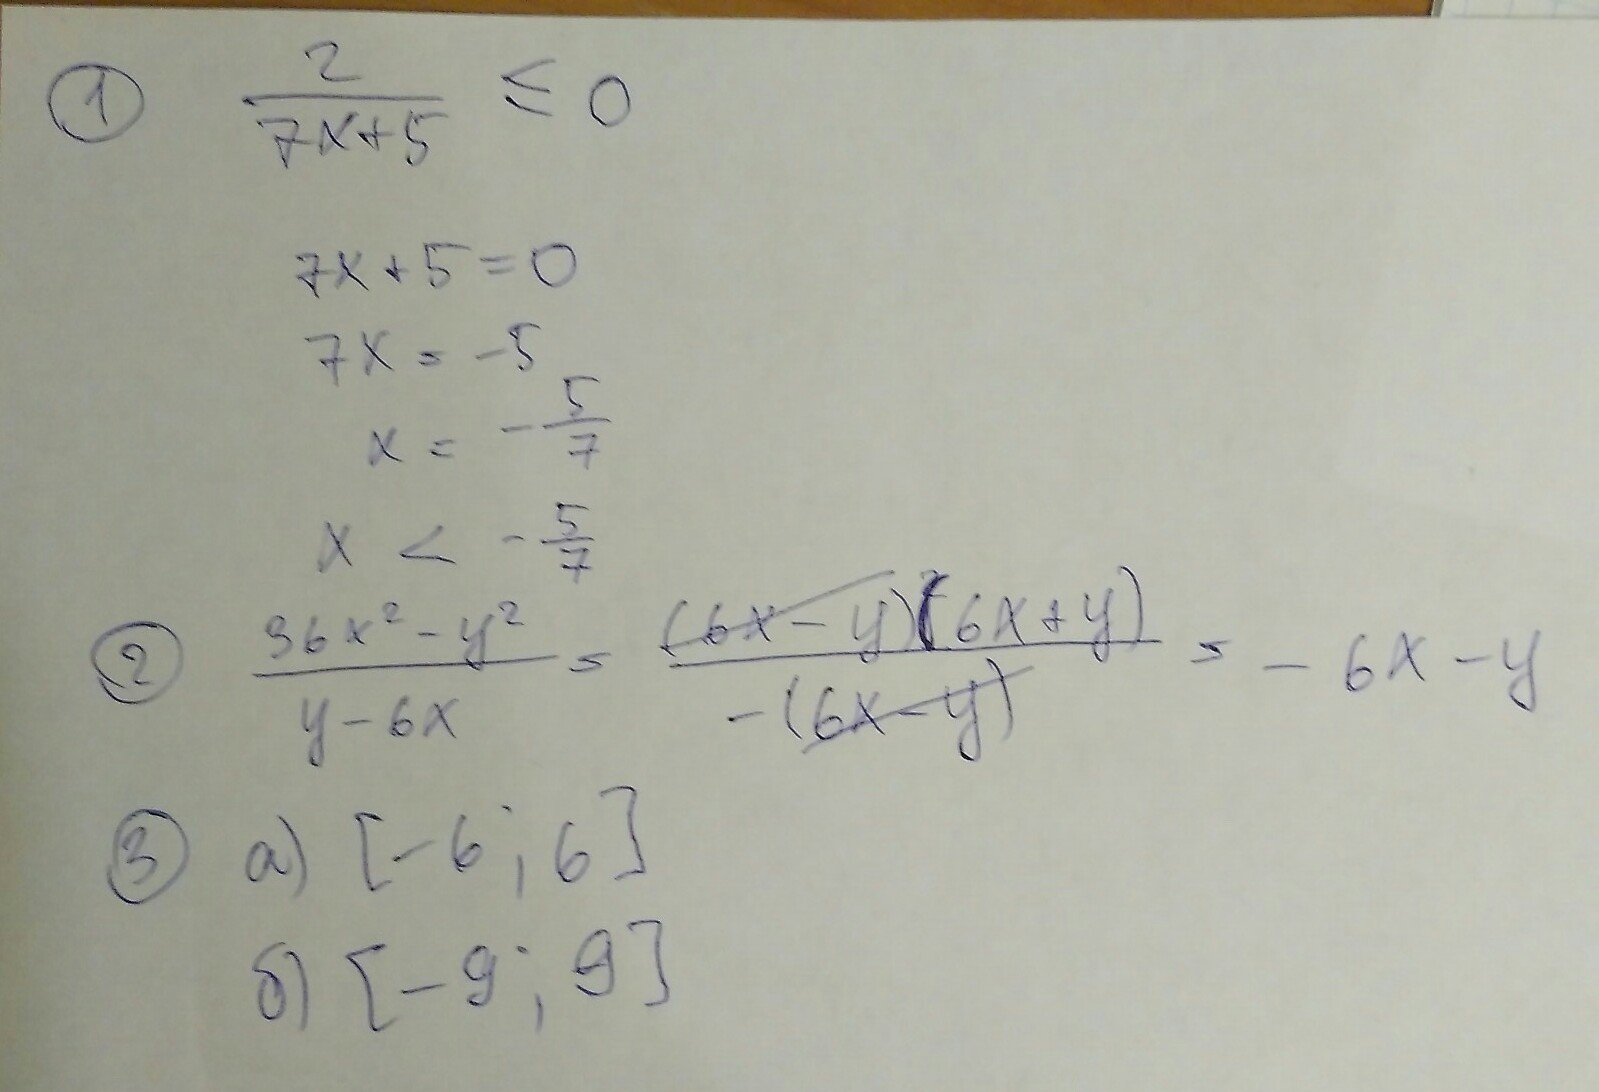 ① 2/(7x+5) ≤ 0
7x+5=0
7x = -5
x = -5/7
x < -5/7
② (36x²-y²)/(y-6x) = ((6x-y)(6x+y))/(-(6x-y)) = -6x-y
③ а) [-6; 6]
б) [-9; 9]